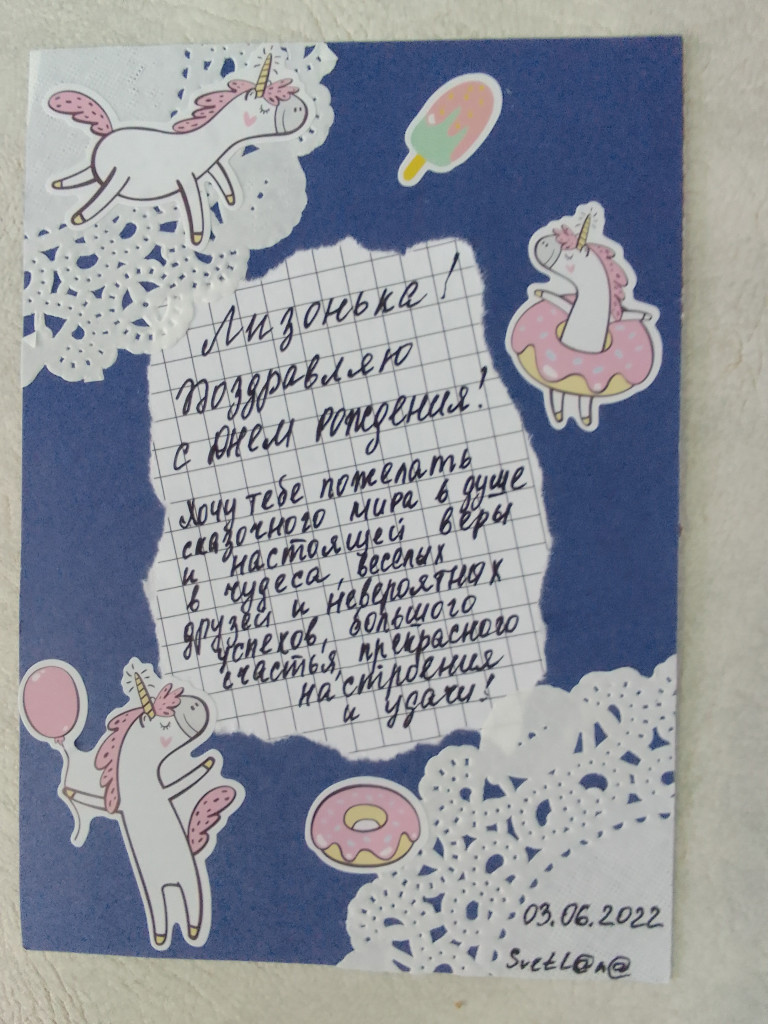 Лизонька!
Поздравляю
с Днем рождения!
Хочу тебе пожелать
сказочного мира в душе
и настоящей веры
в чудеса, веселых
друзей и невероятных
успехов, большого
счастья, прекрасного
настроения
и удачи!
03.06.2022
Svetl@n@